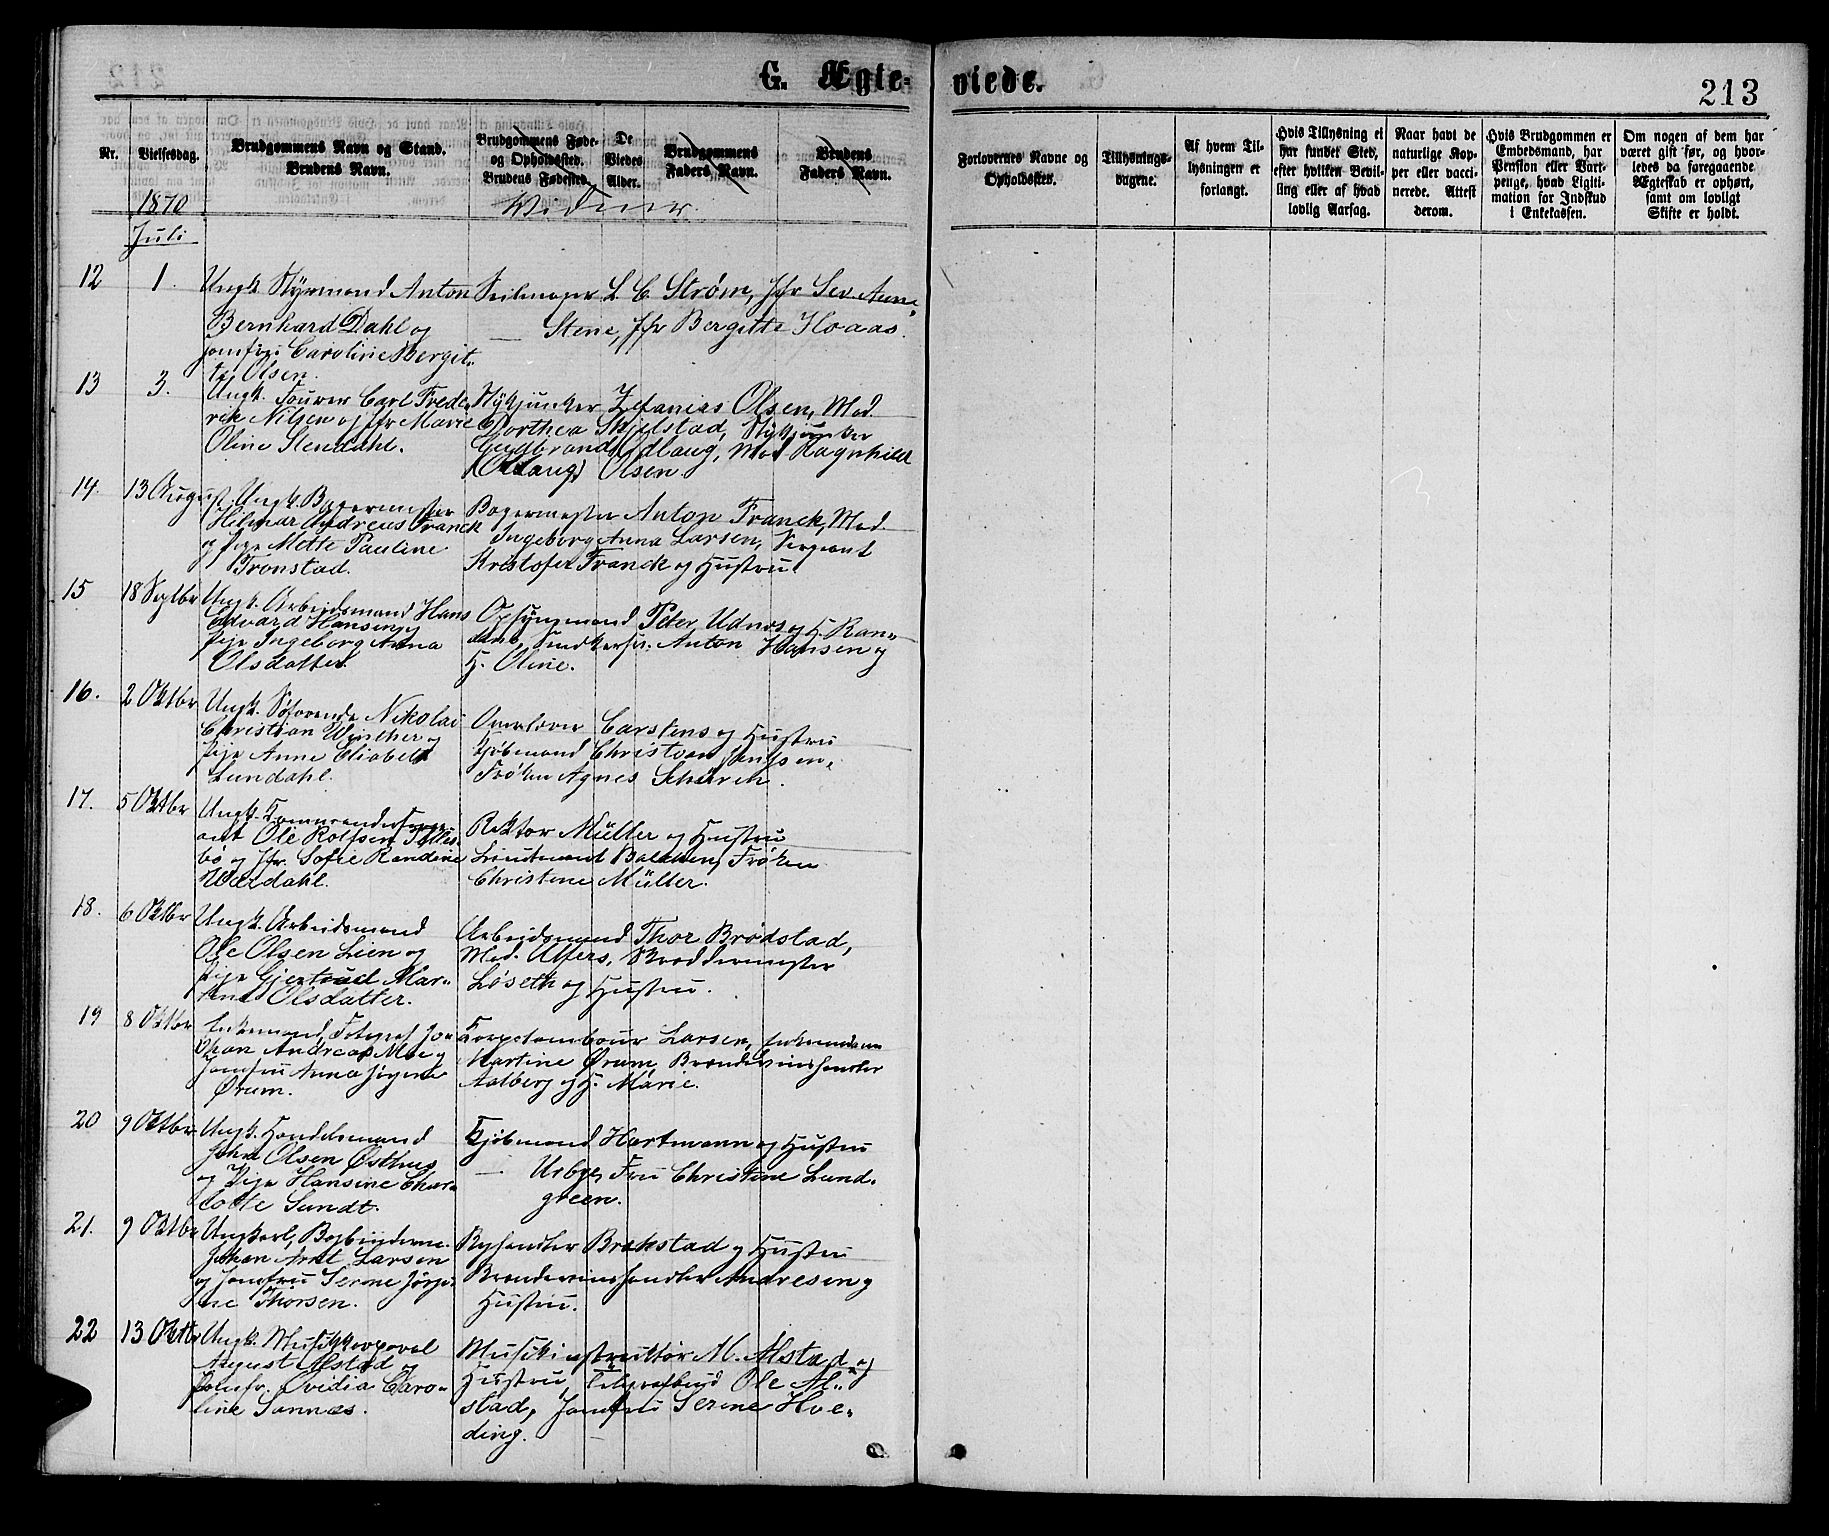 G. Ægte-
viede.
213
Nr.
Vielsesdag.
Brudgommens Navn og Stand.
Brudens Navn.
Brudgommens Føde-
og Opholdssted.
Brudens Fødested.
De
Viedes
Alder.
Brudgommens
Faders Navn.
Brudens
Faders Navn.
Forlovernes Navne og
Opholdssted.
Tillysnings-
dagene.
Af hvem Til-
lysningen er
forlangt.
Hvis Tillysning ei
har fundet Sted,
efter hvilken Bevil-
ling eller af hvad
lovlig Aarsag.
Naar havt de
naturlige Kop-
per eller vacci-
nerede. Attest
derom.
Hvis Brudgommen er
Embedsmand, har
Pension eller Vart-
penge, hvad Ligiti-
mation for Indskud
i Enkekassen.
Om nogen af dem har
været gift før, og hvor-
ledes da foregaaende
Ægteskab er ophørt,
samt om lovligt
Skifte er holdt.
1870
Vidner
Juli
12 1. Ungk. Styrmand Anton
Bernhard Dahl og
Jomfru Caroline Bergit-
te Olsen.
Seilmager L. C. Strøm, Jfr Sev. Aune
— Stene, Jfr Bergitte Hoaas.
13 3. Ungk. Fourer Carl Frede-
rik Nilsen og Jfr Marie
Oline Stendahl.
Stykjunker Zefanias Olsen, Mad.
Dorthea Skjelstad, Stykjunker
Gudbrand Odlaug, Mad Ragnhild
(Odlaug) Olsen.
14. 13 August. Ungk. Bagermester
Hilmar Andreas Franck
og Pige Mette Pauline
Tronstad.
Bagermester Anton Franck, Mad.
Ingeborg Anna Larsen, Sergeant
Kristofer Franck og Hustru.
15 18 Septbr Ungk. Arbeidsmand Hans
Edvard Hansen og
Pige Ingeborg Anna
Olsdatter.
Opsynsmand Peter Udnes og H. Ran-
Anton Hansen og
H. Oline.
16. 2 Oktbr Ungk. Søfarende Nikolai
Christian Winther og
Pige Anne Elisabet
Lundahl.
Carstens og Hustru
Kjøbmand Christian Jenssen,
Frøken Agnes
17. 5 Oktbr Ungk. Commanderserge-
ant Ole Rolfsen
bø og Jfr. Sofie Randine
Værdahl.
Rektor Müller og Hustru
Lieutenant Balchen, Frøken
Christine Müller.
18. 6 Oktbr Ungk. Arbeidsmand
Ole Olsen Lien og
Pige Gjertrud Mar-
tina Olsdatter.
Arbeidsmand Thor Brødstad,
Mad. Alfers, Skræddermester
Løseth og Hustru.
19 8 Oktbr Enkemand, Fotograf Jo-
han Andreas Moe og
Jomfru Anna Jørgine
Ørum.
Corpstambour Larsen, Enkemadam
Martine Ørum, Brændevinshandler
Aalberg og H. Marie.
20 9 Oktbr Ungk. Handelsmand
John Olsen Østhus
og Pige Hansine Char-
lotte Sundt.
Kjøbmand Hartmann og Hustru
— Usbye, Fru Christine Lund-
green.
21. 9 Oktbr Ungkarl, Bogbinder
Johan Arnt Larsen
og Jomfru Serene Jørgi-
ne Thorsen.
Byhandler Brakstad og Hustru
Brændevinshandler Andresen og
Hustru.
22 13 Oktbr Ungk. Musikkorporal
August Alstad og
Jomfr. Ovidia Caro-
line Sannæs.
Musikinstruktør M. Alstad og
Hustru, Telegrafbud Ole Al-
stad, Jomfru Serene Hoe-
ding.